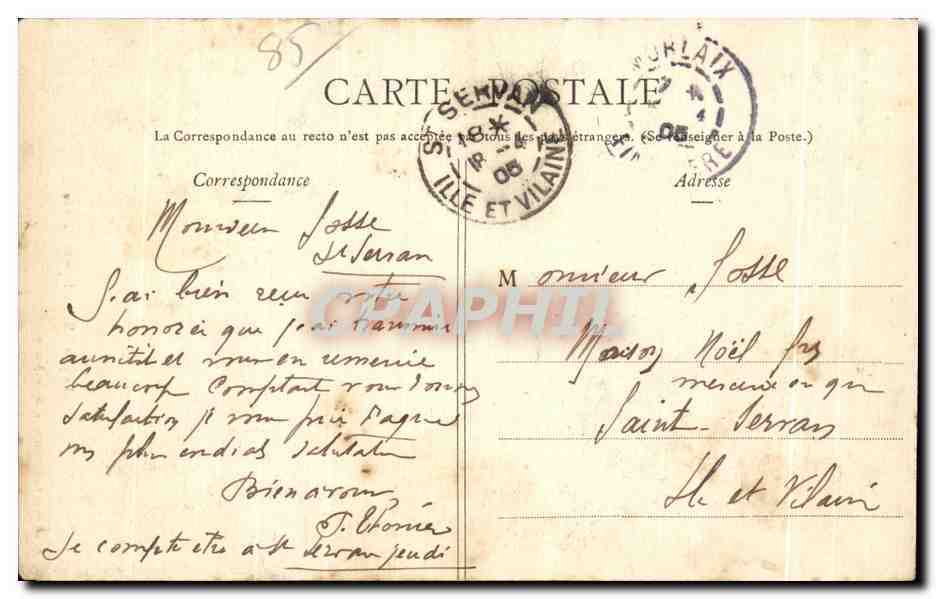 85
CARTE POSTALE
La Correspondance au recto n'est pas acceptée par tous les pays étrangers. (Se renseigner à la Poste.)
ST SERVAN
18 *
8 -4
05
ILLE ET VILAINE
MORLAIX
* 4
05
Correspondance
Adresse
Monsieur Josse
St Servan
J'ai bien reçu votre
honorée que j'ai transmis
aussitôt et vous en remercie
beaucoup Comptant vous donner
satisfaction je vous prie d'agréer
mes plus cordiales salutations
Bien à vous
Je compte etre a St Servan jeudi
Monsieur Josse
Maison Noël
Saint-Servan
Ille et Vilaine
CPAPHIL